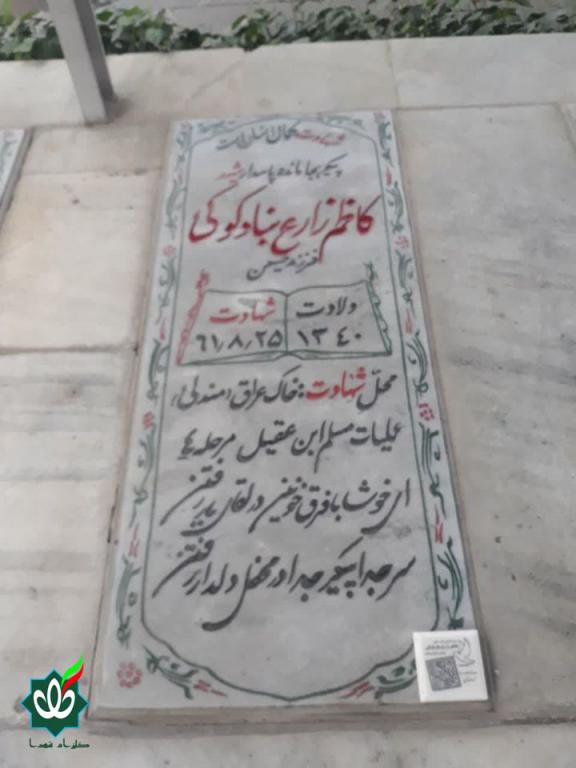 شهادت کمال انسان است
پیکر بجا مانده پاسدار شهید
کاظم زارع بنادکوکی
فرزند حسن
ولادت
۱۳۴۰
شهادت
۶۱٫۸٫۲۵
محل شهادت: خاک عراق (مندلی)
عملیات مسلم ابن عقیل مرحله ۴
ای خوشا با فرق خونین در لقای یار رفتن
سر جدا پیکر جدا در محفل دلدار رفتن
گلزار شهدا